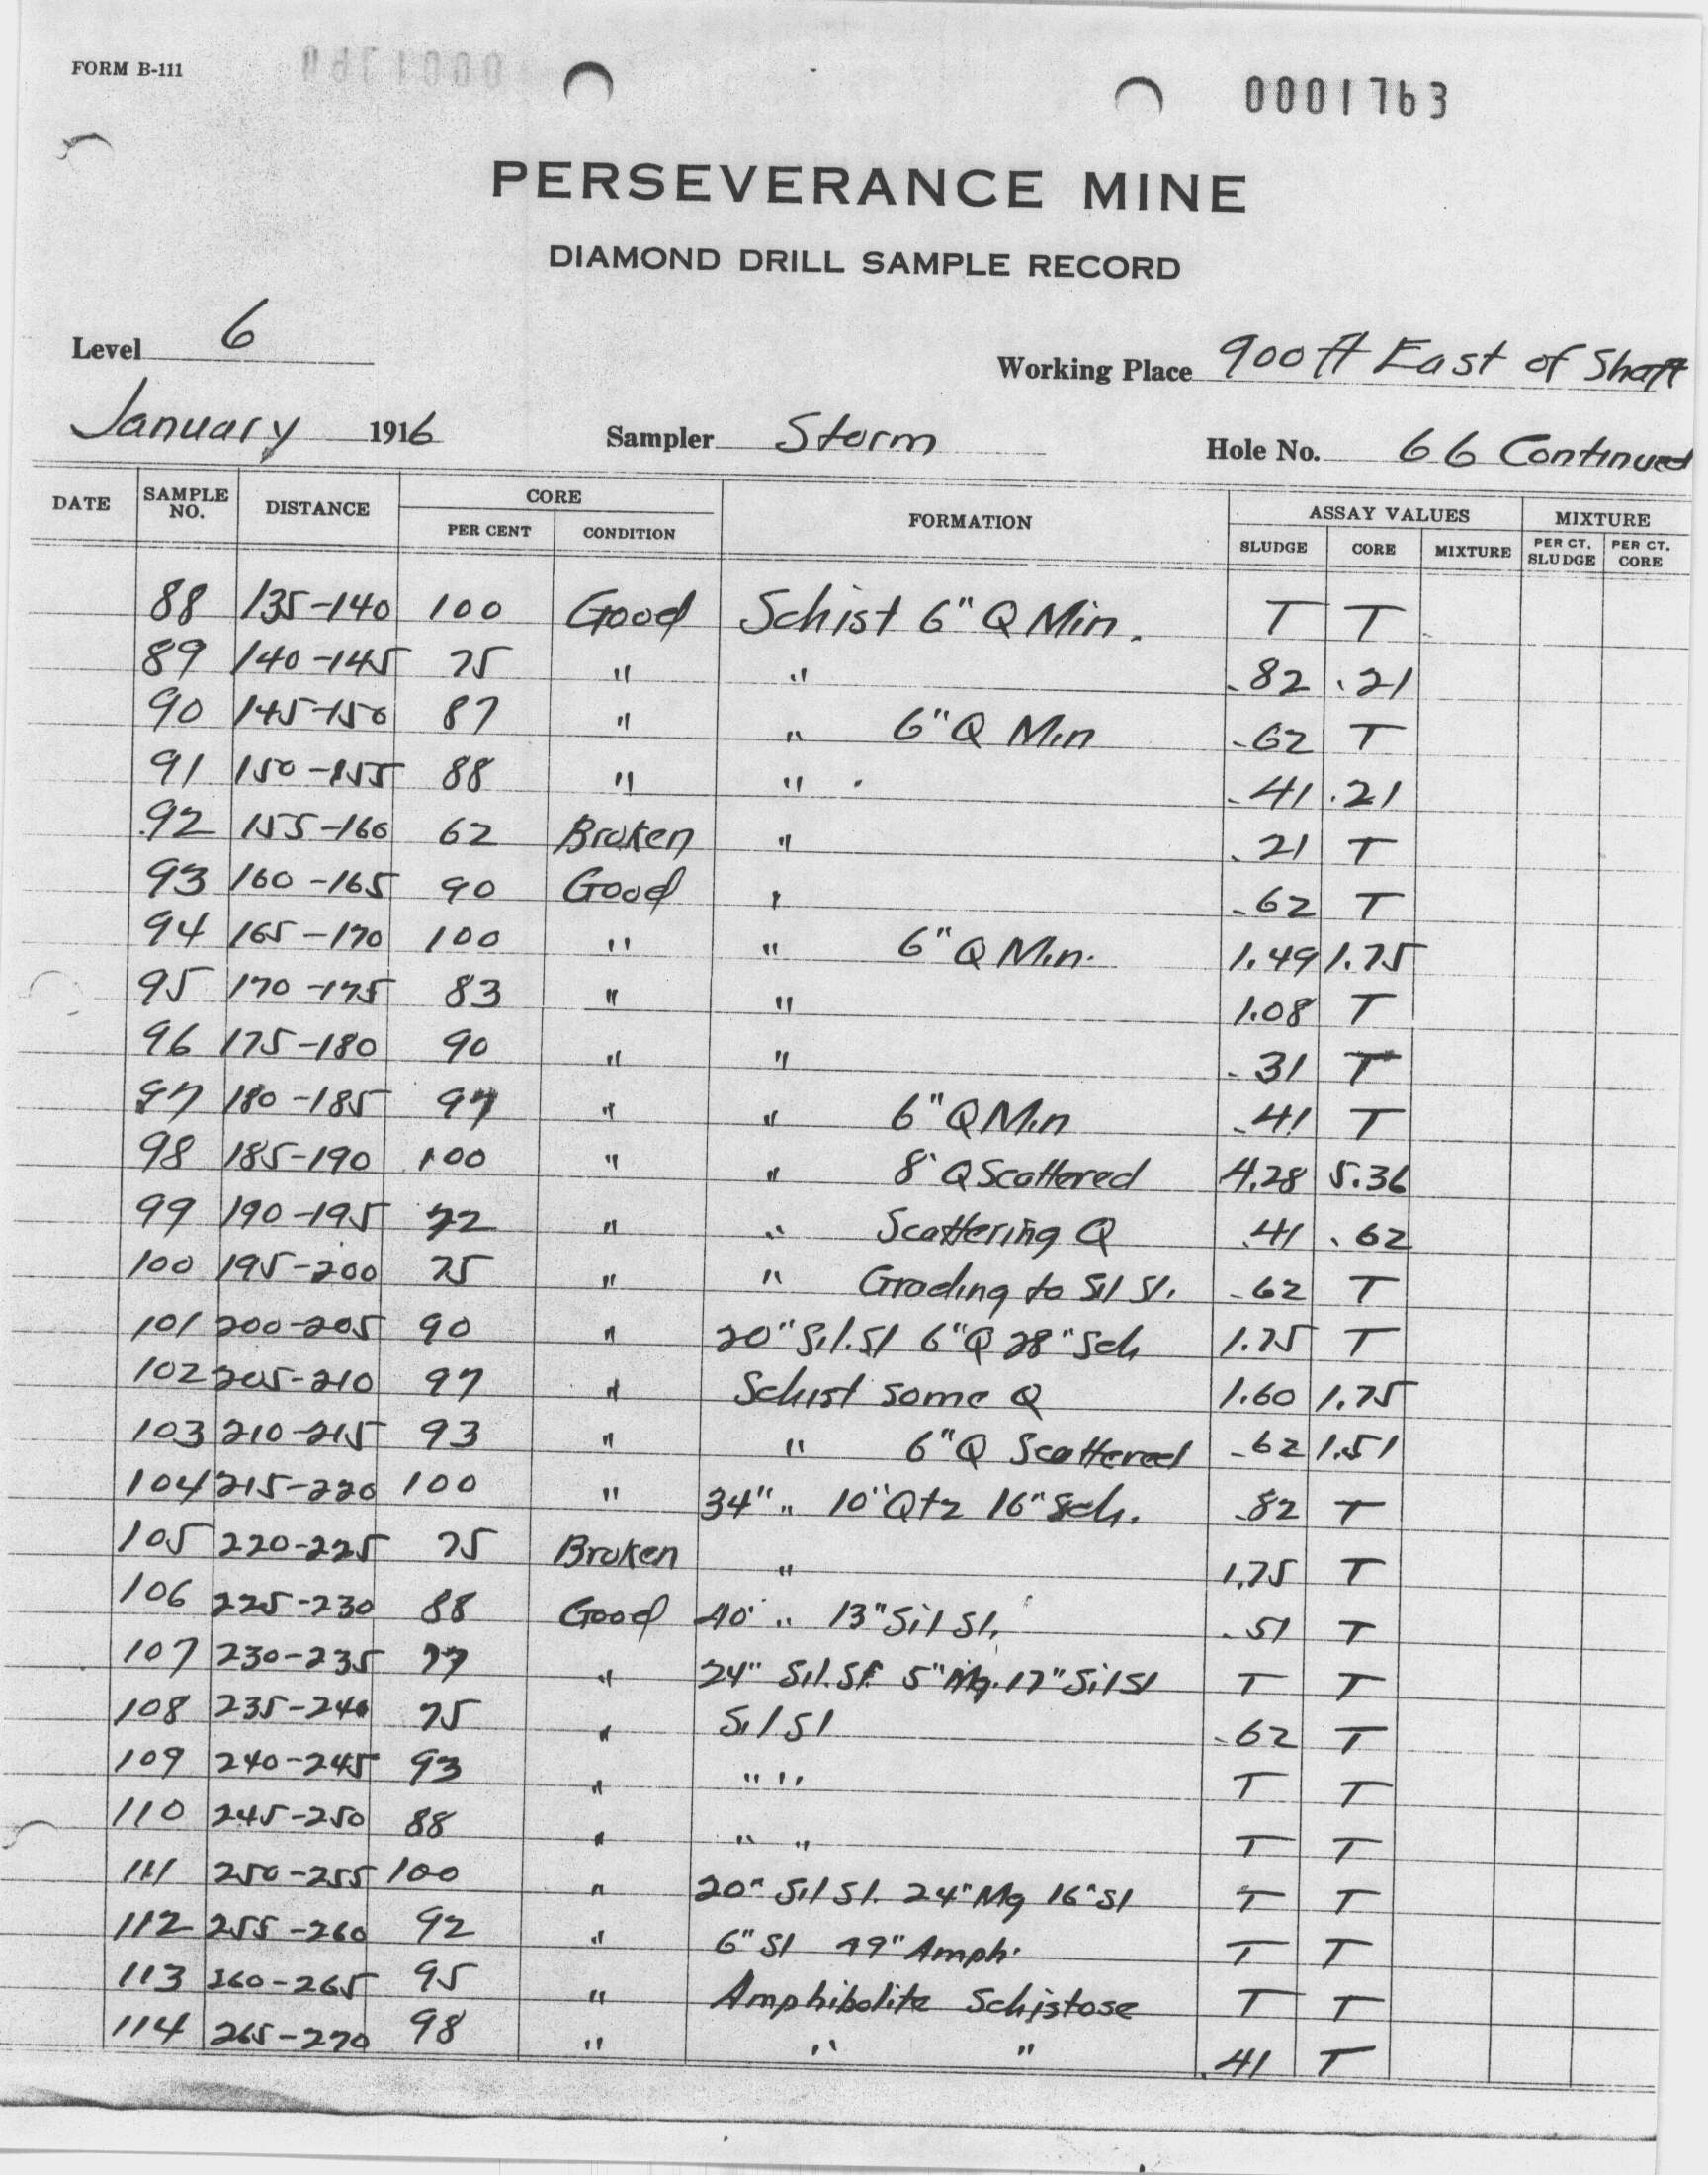 FORM B-111
0001763
PERSEVERANCE MINE
DIAMOND DRILL SAMPLE RECORD
Level 6
Working Place 900 ft East of Shaft
January 1916 Sampler Storm Hole No. 66 Continued
DATE SAMPLE NO. DISTANCE CORE PER CENT CONDITION FORMATION ASSAY VALUES SLUDGE CORE MIXTURE MIXTURE PER CT. SLUDGE PER CT. CORE
88 135-140 100 Good Schist 6" Q Min. T T
89 140-145 75 " " .82 .21
90 145-150 87 " " 6" Q Min .62 T
91 150-155 88 " " .41 .21
92 155-160 62 Broken " .21 T
93 160-165 90 Good " .62 T
94 165-170 100 " " 6" Q Min. 1.49 1.75
95 170-175 83 " " 1.08 T
96 175-180 90 " " .31 T
97 180-185 97 " " 6" Q Min .41 T
98 185-190 100 " " 8" Q Scattered 4.28 5.36
99 190-195 72 " " Scattering Q .41 .62
100 195-200 75 " " Grading to Sil Sl. .62 T
101 200-205 90 " 20" Sil. Sl 6" Q 28" Sch 1.75 T
102 205-210 97 " Schist some Q 1.60 1.75
103 210-215 93 " " 6" Q Scattered .62 1.51
104 215-220 100 " 34" " 10" Qtz 16" Sch. .82 T
105 220-225 75 Broken " 1.75 T
106 225-230 88 Good 40" " 13" Sil Sl. .51 T
107 230-235 77 " 24" Sil. Sl. 5" Mg. 17" Sil Sl T T
108 235-240 75 " Sil Sl .62 T
109 240-245 93 " " " T T
110 245-250 88 " " " T T
111 250-255 100 " 20" Sil Sl. 24" Mg 16" Sl T T
112 255-260 92 " 6" Sl 49" Amph. T T
113 260-265 95 " Amphibolite Schistose T T
114 265-270 98 " " " .41 T